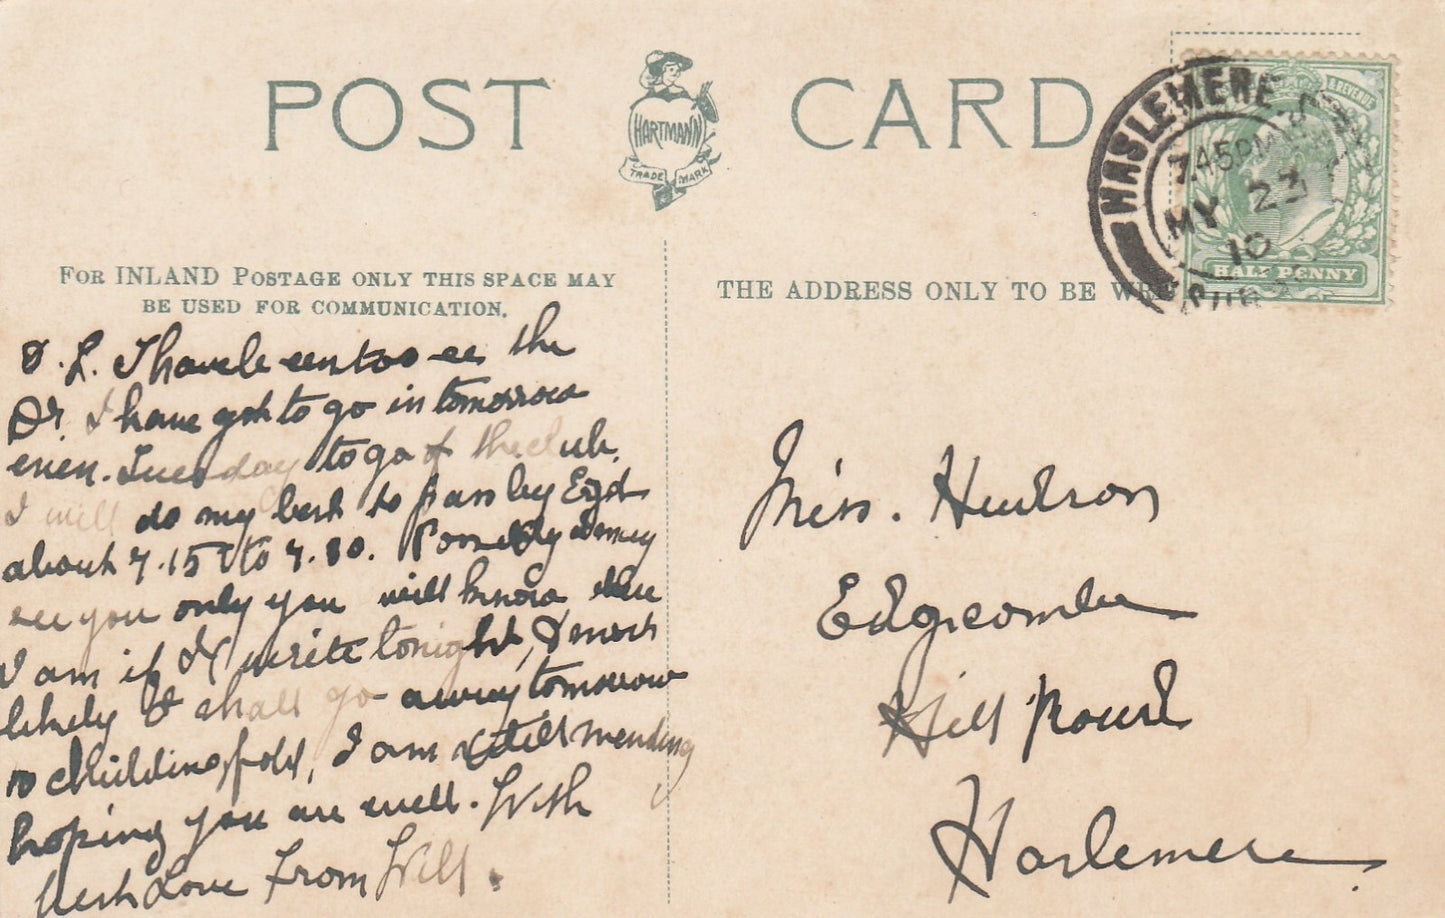 POST CARD
HARTMANN
TRADE MARK
HASLEMERE
7.45PM
MY 23
10
HALF PENNY
FOR INLAND POSTAGE ONLY THIS SPACE MAY
BE USED FOR COMMUNICATION.
THE ADDRESS ONLY TO BE
D. L. I have been too see the
Dr. I have got to go in tomorrow
even. Tuesday to go of the club.
I will do my best to pass by Egd
about 7.15 to 7.30. I may
see you only you will know
I am if I write tonight, &
likely I shall go away tomorrow
to Chiddingfold, I am still mending
hoping you are well. With
best Love From Will.
Miss. Hudson
Edgecombe
Hill Road
Haslemere